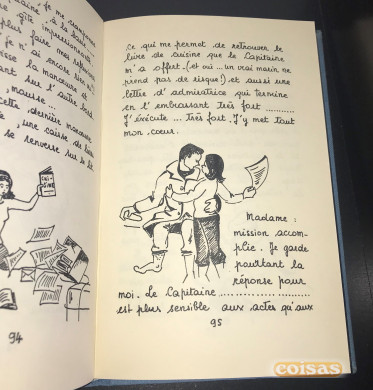 je me cramponne
à la
gîte
plus faire mes
je n'ai encore
la manœuvre et
sur l'autre bord
... mousse ...
Cette dernière manœuvre
, une caisse de
se renverse sur le
CUI-
SINE
94
Ce qui me permet de retrouver le
livre de cuisine que le Capitaine
m'a offert, (et oui ... un vrai marin ne
prend pas de risque!) et aussi une
lettre d'admiratrice qui termine
en l'embrassant très fort ............
J'exécute ... très fort. J'y met tout
mon cœur.
Madame :
mission accom-
plie. Je garde
pourtant la
réponse pour
moi. Le Capitaine ....................
est plus sensible aux actes qu'aux
95
coisas